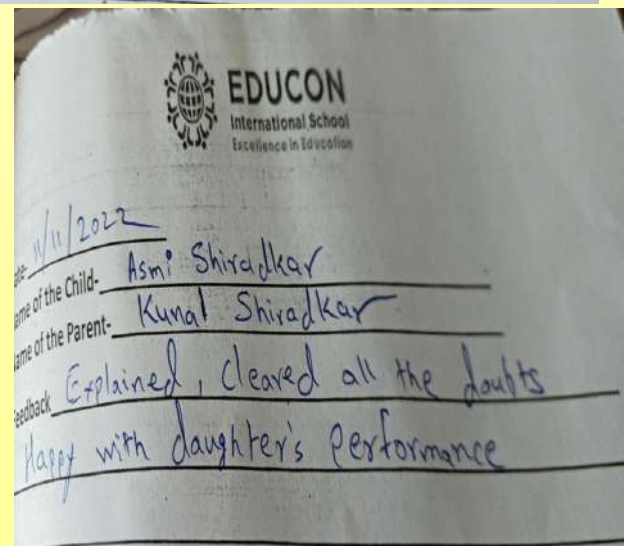 EDUCON
International School
Excellence in Education
ate- 11/11/2022
ame of the Child- Asmi Shiradkar
ame of the Parent- Kunal Shiradkar
eedback Explained, Cleared all the doubts
Happy with daughter's performance